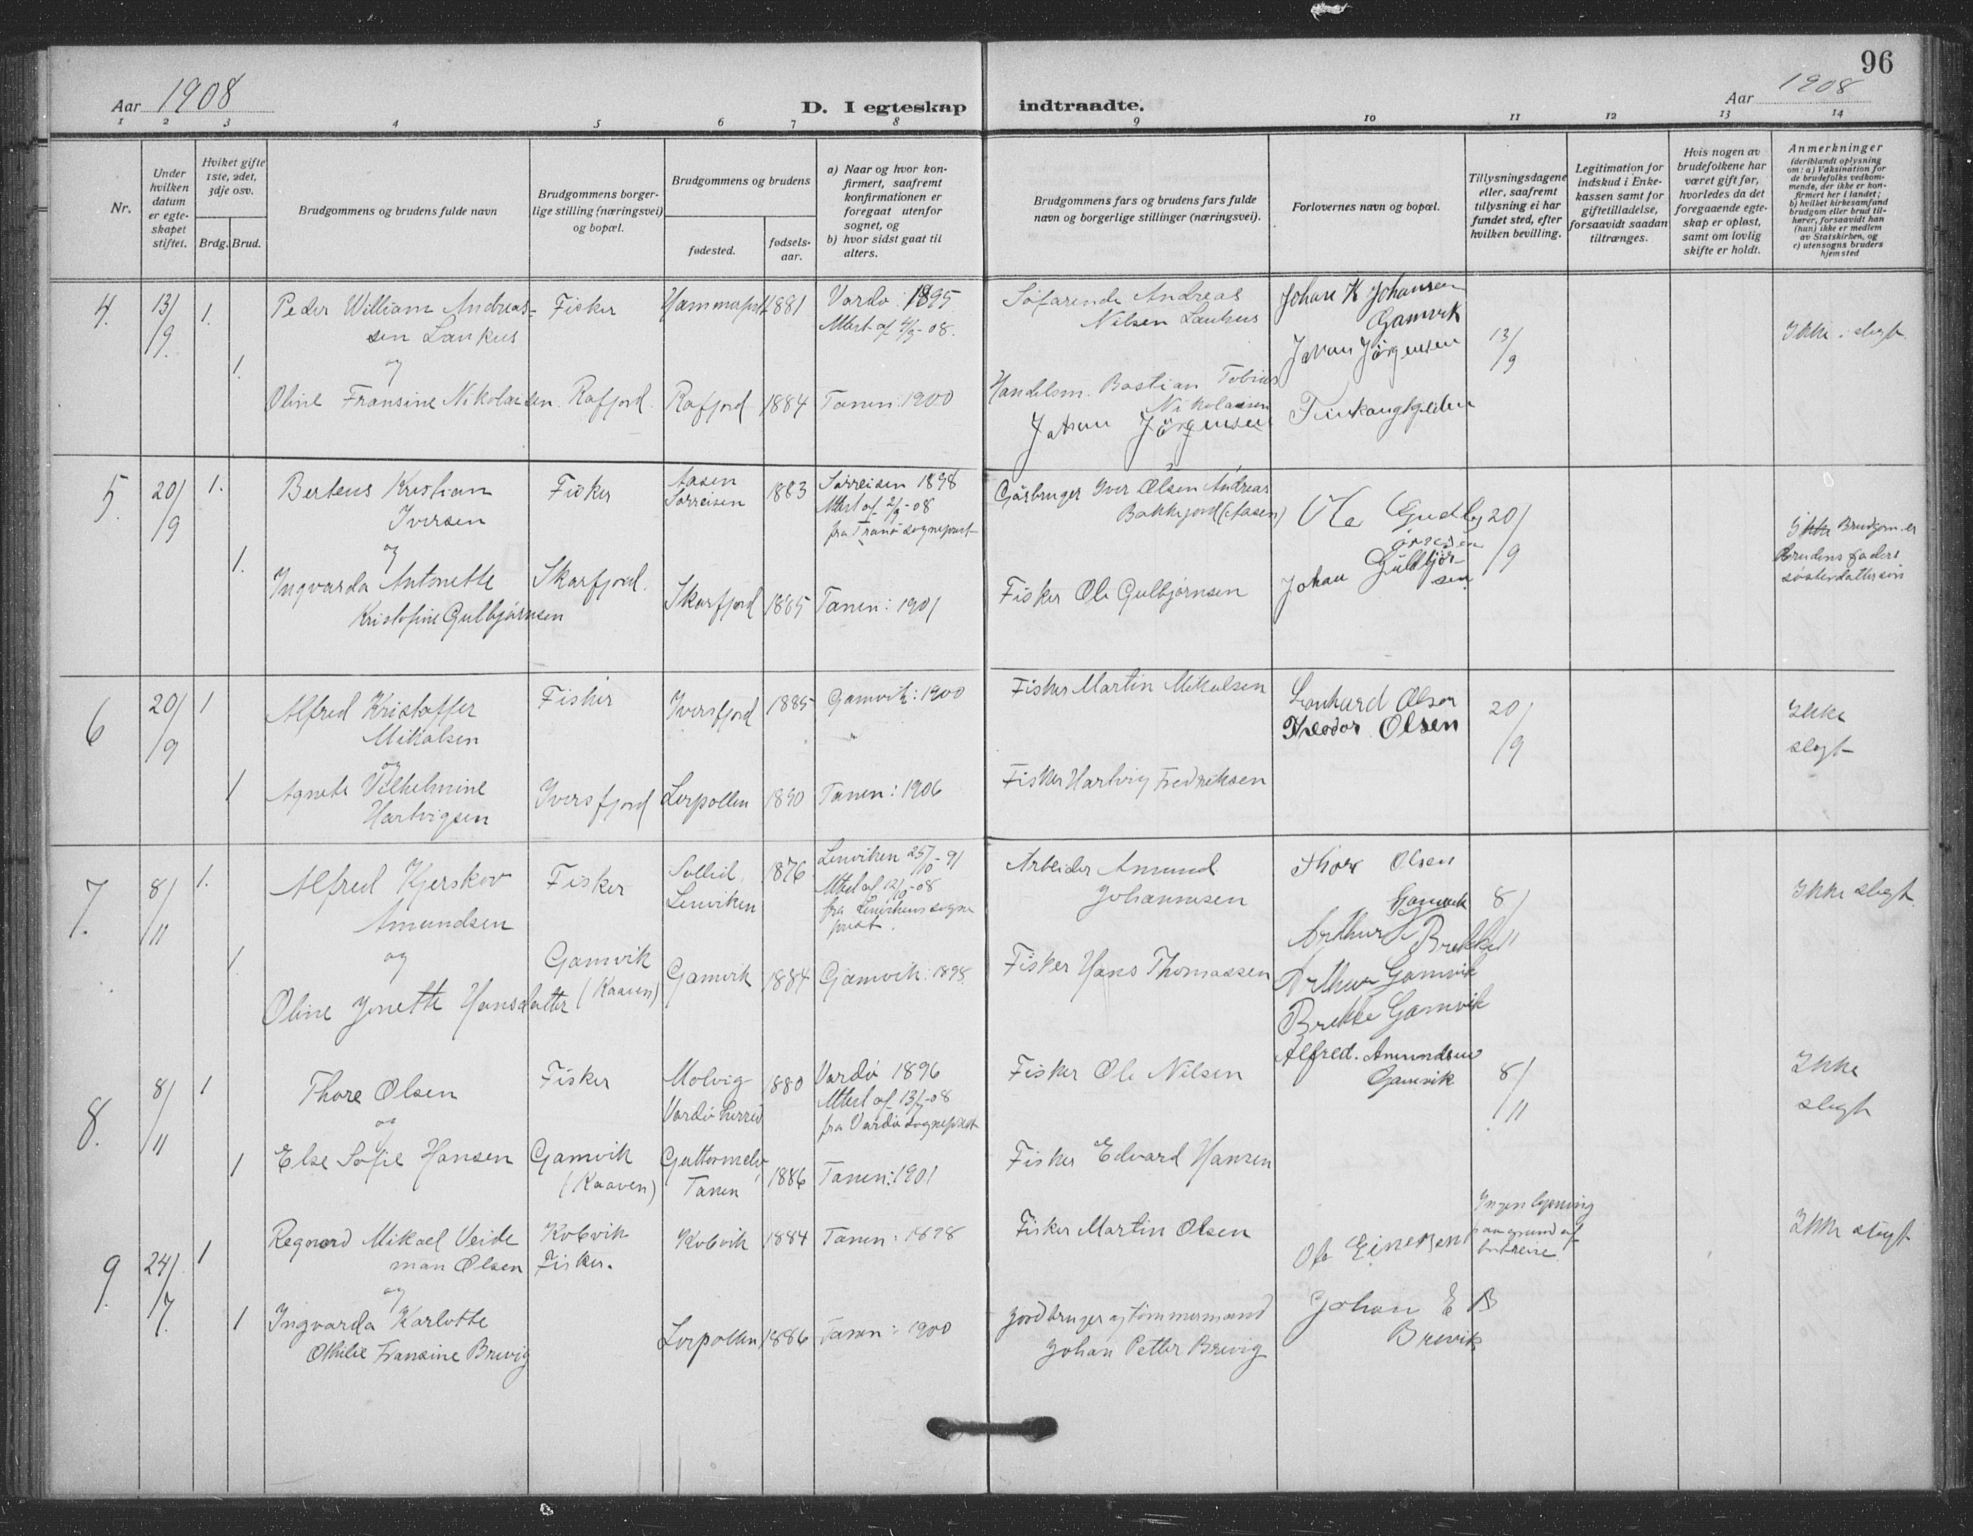 96
Aar 1908
D. I egteskap indtraadte.
Aar 1908
1 2 3 4 5 6 7 8 9 10 11 12 13 14
Nr.
Under hvilken datum er egteskapet stiftet.
Hviket gifte 1ste, 2det, 3dje osv.
Brdg. Brud.
Brudgommens og brudens fulde navn
Brudgommens borgerlige stilling (næringsvei) og bopæl.
Brudgommens og brudens
fødested.
fødselsaar.
a) Naar og hvor konfirmert, saafremt konfirmationen er foregaat utenfor sognet, og
b) hvor sidst gaat til alters.
Brudgommens fars og brudens fars fulde navn og borgerlige stillinger (næringsvei).
Forlovernes navn og bopæl.
Tillysningsdagene eller, saafremt tillysning ei har fundet sted, efter hvilken bevilling.
Legitimation for indskud i Enkekassen samt for giftetilladelse, forsaavidt saadan tiltrænges.
Hvis nogen av brudefolkene har været gift før, hvorledes da det foregaaende egteskap er opløst, samt om lovlig skifte er holdt.
Anmerkninger
(deriblandt oplysning om: a) Vaksination for de brudefolks vedkommende, der ikke er konfirmert her i landet; b) hvilket kirkesamfund brudgom eller brud tilhører, forsaavidt han (hun) ikke er medlem av Statskirken, og c) utensogns bruders hjemsted
4. 13/9 1. Peder William Andreassen Lankus Fisker 1881 Vardø: 1895
Attest af 4/9-08.
Søfarende Andreas Nilsen
Johan K Johansen
Gamvik
13/9
Ikke slegt.
og
1. Oline Fransine Nikolaisen Rafjord. Rafjord 1884 Tanen: 1900
Handelsm. Bastian Tobias Nikolaisen
Johan Jørgensen
Johan Jørgensen
5. 20/9 1. Berteus Kristian Iversen Fisker Aasen Sørreisen 1883 Sørreisen 1898
Attest af 2/9-08
fra Tranø sogneprest
Gårbruger Iver Olsen Andreas Bakkejord (Aasen)
Ole Gudbjørnsen
20/9
Ikke Brudgom er Brudens faders søsterdattersøn
og
1. Ingvarda Antonette Kristofine Gulbjørnsen Skarfjord. Skarfjord 1885 Tanen: 1901
Fisker Ole Gulbjørnsen
Johan Guldbjørsen
6 20/9 1 Alfred Kristoffer Mikalsen Fisker Iversfjord 1885 Gamvik: 1900
Fisker Martin Mikalsen
Lenhard Olsen
Theodor Olsen
20/9
Ikke slegt
og
1 Agnete Vilhelmine Hartvigsen Iversfjord Lerpollen 1890 Tanen: 1906
Fisker Hartvig Fredriksen
7. 8/11 1. Alfred Kjerskov Amundsen Fisker Sollid, Lenviken 1876 Lenviken 25/10-91
Attest af 12/10-08
fra Lenvikens sogneprest.
Arbeider Amund Johannesen
Thor Olsen
Gamvik
8/11
Ikke slegt.
og
1. Oline Jonette Hansdatter Gamvik (Kaaven) Gamvik 1884 Gamvik: 1898.
Fisker Hans Thomassen
Arthur Brekke
Arthur Gamvik
Brekke Gamvik
8. 8/11 1 Thore Olsen Fisker Molvig Vardø herred 1880 Vardø 1896
Attest af 13/7-08
fra Vardø sogneprest
Fisker Ole Nilsen
Alfred. Amundsen
Gamvik
8/11
Ikke slegt
og
1 Else Sofie Hansen Gamvik (Kaaven) Guttormelv, Tanen 1886 Tanen: 1901
Fisker Edvard Hansen
9. 24/7. 1 Regnord Mikael Veideman Olsen Kobvik Fisker. Kobvik 1884 Tanen: 1898
Fisker Martin Olsen
Ole Einersen
Ingen lysning paa grund af bortreise
Ikke slegt
og
1 Ingvarda Karlotte Othilie Fransine Brevig Lerpollen 1886 Tanen: 1900
Jordbruger og tømmermand Johan Petter Brevig
Johan E B Brevik